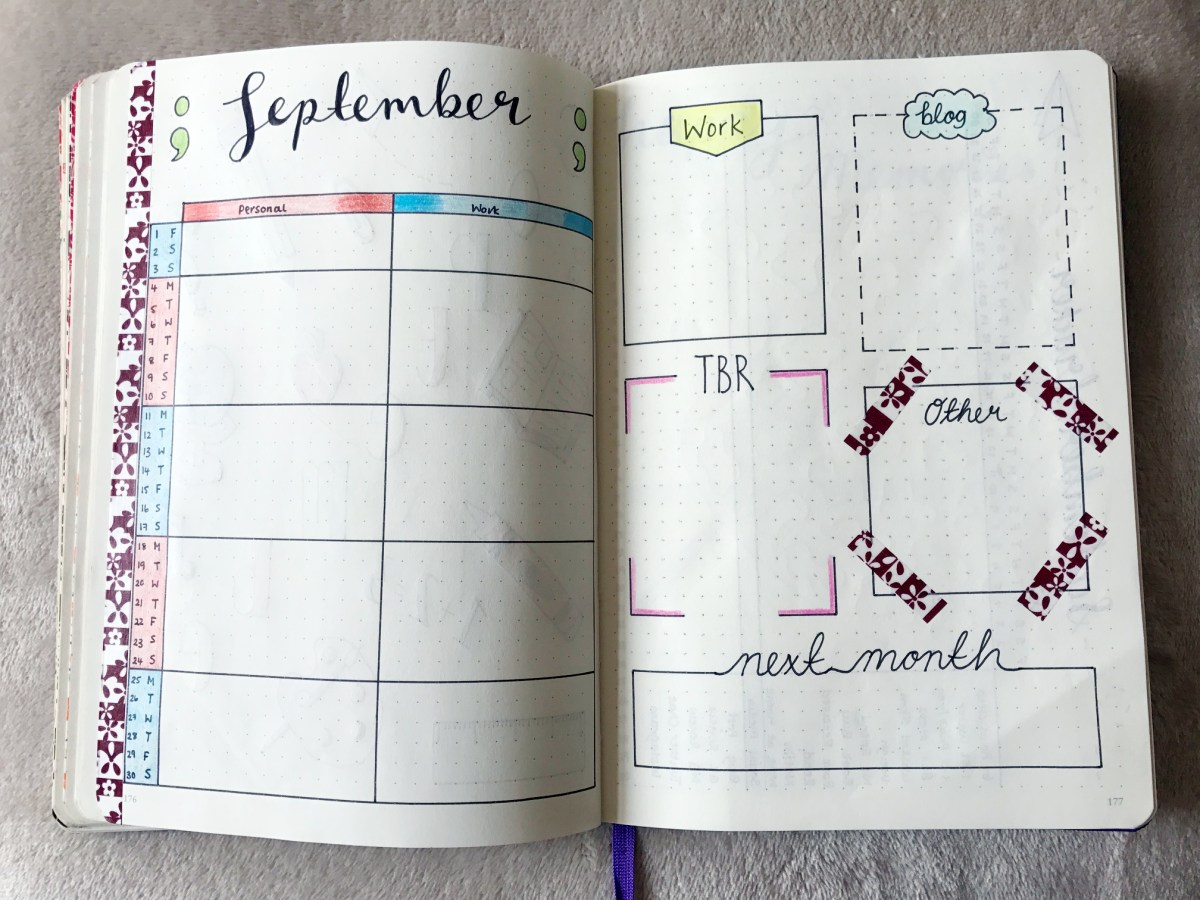 September
Personal Work
1 F
2 S
3 S
4 M
5 T
6 W
7 T
8 F
9 S
10 S
11 M
12 T
13 W
14 T
15 F
16 S
17 S
18 M
19 T
20 W
21 T
22 F
23 S
24 S
25 M
26 T
27 W
28 T
29 F
30 S
176
Work
blog
TBR
Other
next month
177